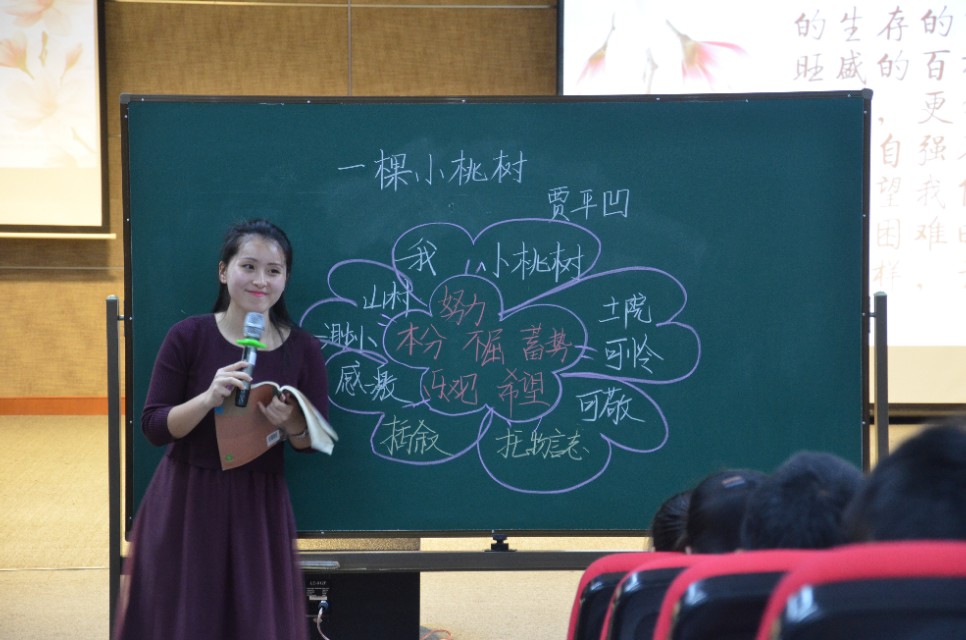 一棵小桃树
贾平凹
我 小桃树
山村 努力 土院
渺小 本分 不屈 蓄势 可怜
感激 希望 可敬
插叙 托物言志
的生存的
旺盛的百
，更
自强
望我
困难
样，